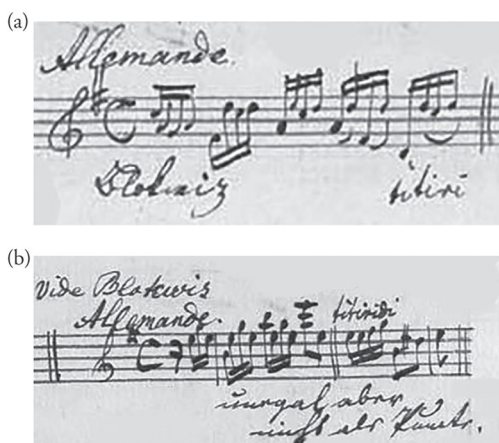 (a)
Allemande.
Blokwiz
titiri
(b)
Vide Blokwis
Allemande.
titiridi
unegal aber
nicht als Punkte.